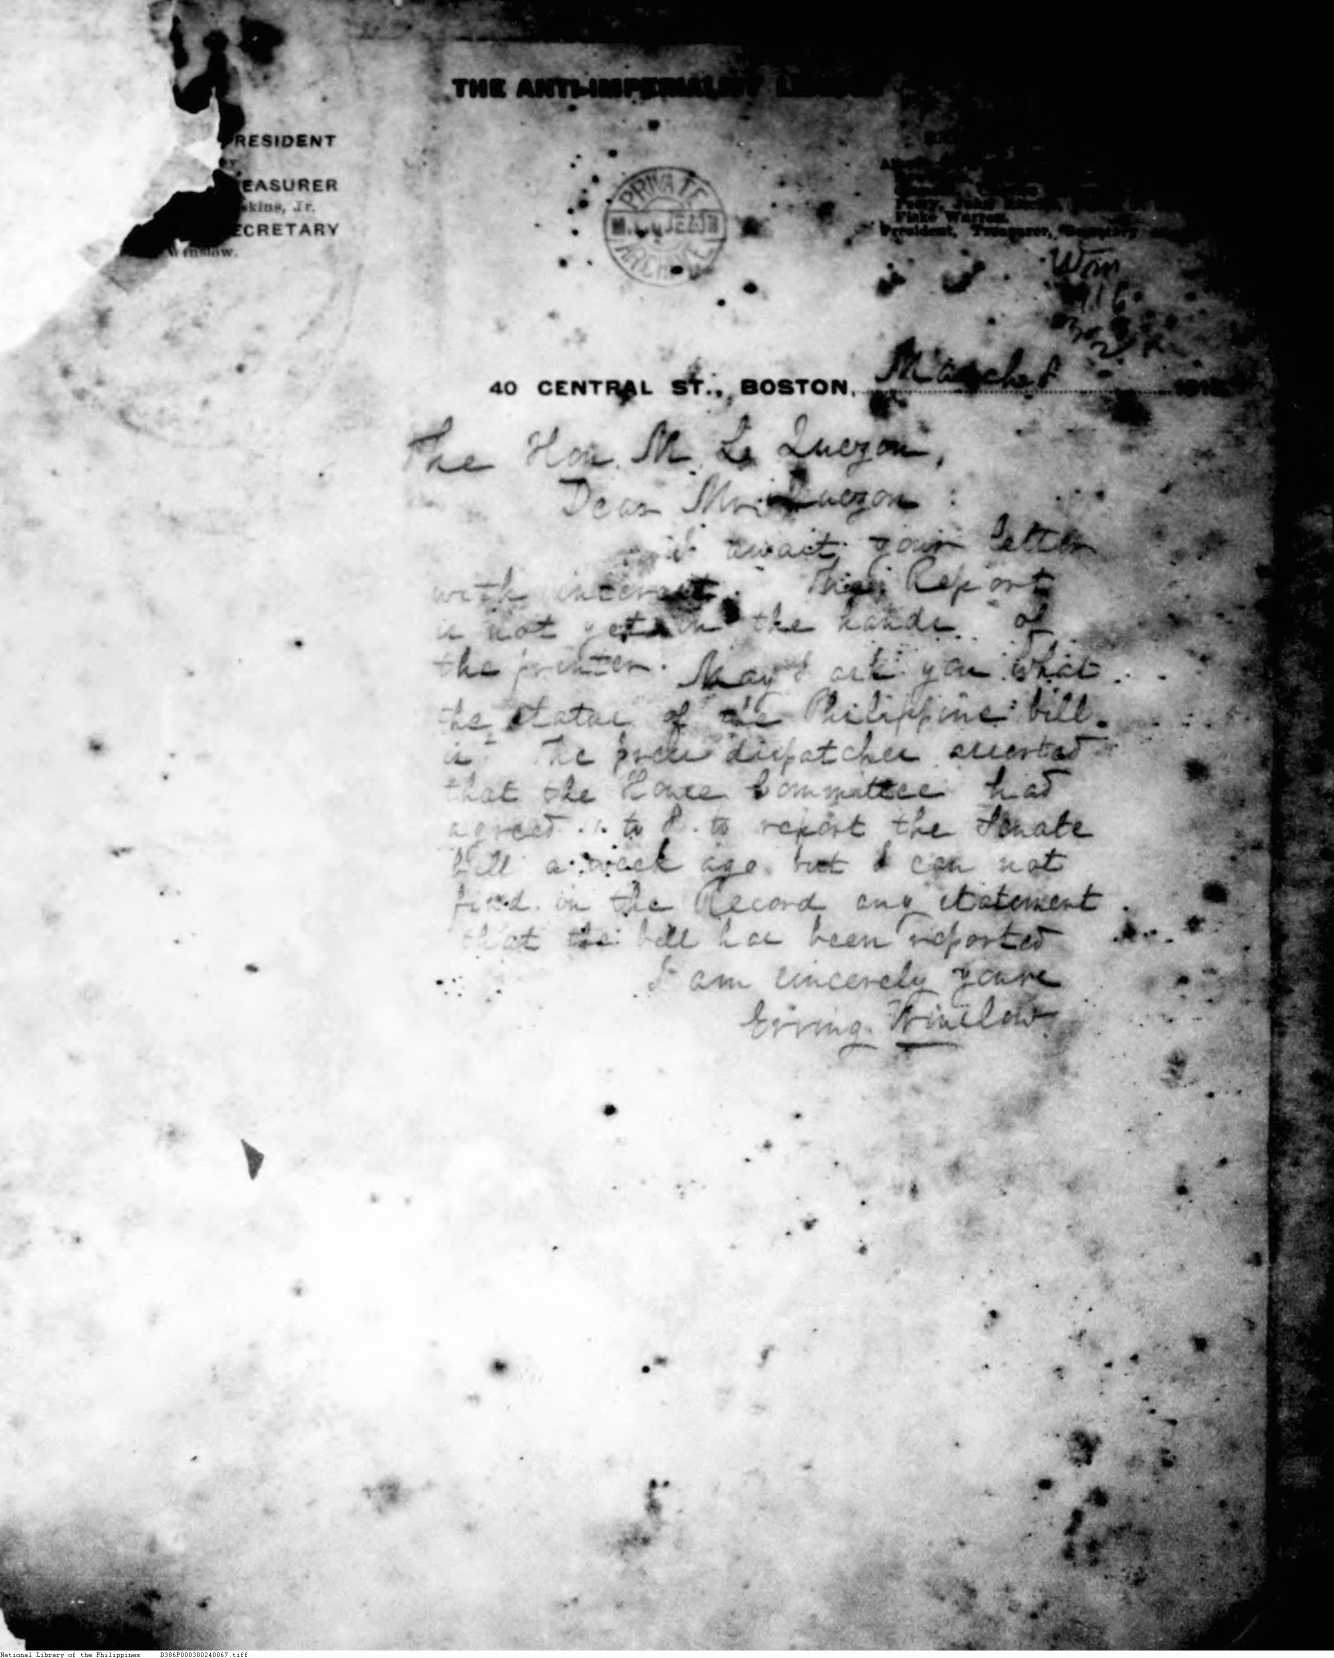 THE ANTI-IMPERIALIST LEAGUE
RESIDENT
EASURER
skins, Jr.
ECRETARY
Winslow.
PRIVATE
M. L. QUEZON
ARCHIVE
Fiske Warren.
President, Treasurer, Secretary
40 CENTRAL ST., BOSTON, March 8 191
The Hon. M. L. Quezon,
Dear Mr. Quezon:
I await your letter
with interest. The Report
is not yet in the hands of
the printer. May I ask you what
the status of the Philippine bill
is? The press dispatches asserted
that the House Committee had
agreed 11 to 8 to report the Senate
bill a week ago but I can not
find in the Record any statement
that the bill has been reported
I am sincerely yours
Erving Winslow
National Library of the Philippines B386P000380240067.tiff